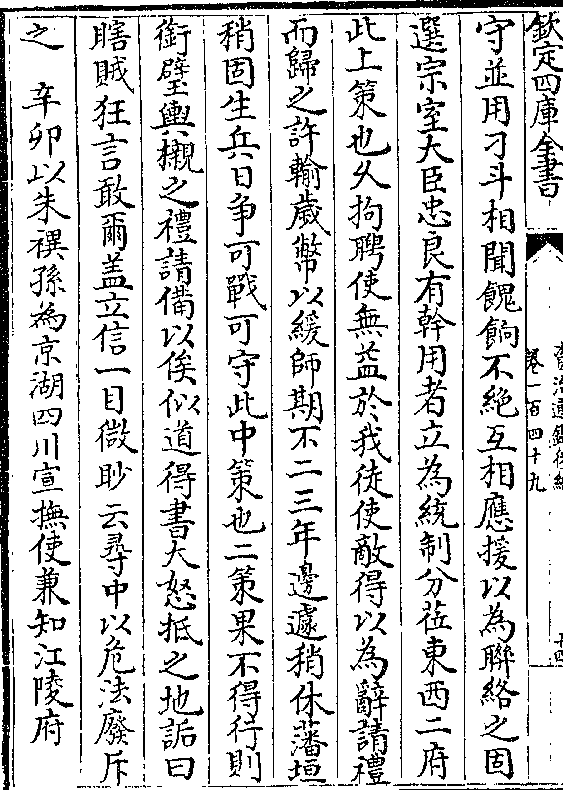 欽定四庫全書
卷一百四十九
守並用刁斗相聞餽餉不絶互相應援以為聯絡之固
選宗室大臣忠良有幹用者立為統制分莅東西二府
此上策也乆拘聘使無益於我徒使敵得以為辭請禮
而歸之許輸歲幣以緩師期不二三年邊遽稍休藩垣
稍固生兵日爭可戰可守此中策也二策果不得行則
銜璧輿櫬之禮請備以俟似道得書大怒抵之地詬曰
瞎賊狂言敢爾盖立信一目微眇云尋中以危法廢斥
之　辛卯以朱禩孫為京湖四川宣撫使兼知江陵府